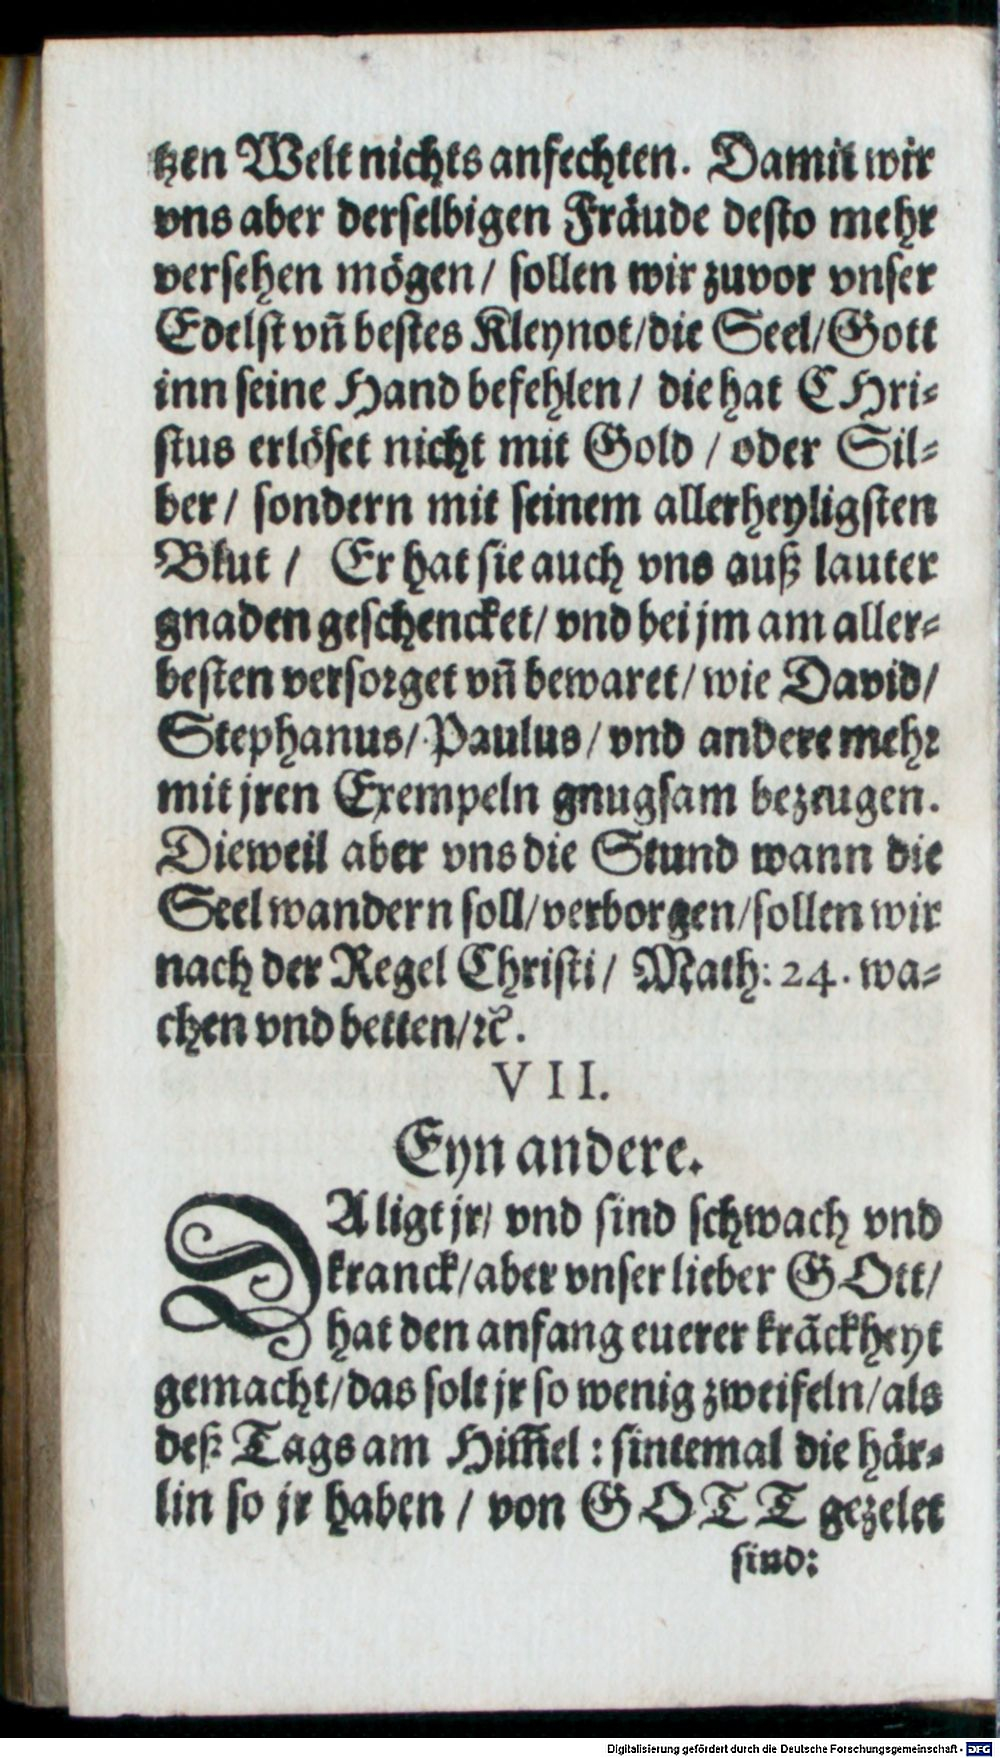 tzen Welt nichts anfechten. Damit wir
vns aber derselbigen Fräude desto mehr
versehen mögen / sollen wir zuvor vnser
Edelst vñ bestes Kleynot/die Seel/Gott
inn seine Hand befehlen / die hat CHri-
stus erlöset nicht mit Gold / oder Sil-
ber / sondern mit seinem allerheyligsten
Blut / Er hat sie auch vns auß lauter
gnaden geschencket/ vnd bei jm am aller-
besten versorget vñ bewaret/ wie David/
Stephanus/ Paulus / vnd andere mehr
mit jren Exempeln gnugsam bezeugen.
Dieweil aber vns die Stund wann die
Seel wandern soll/verborgen/sollen wir
nach der Regel Christi / Math: 24. wa-
chen vnd betten/ꝛc̃.
VII.
Eyn andere.
DA ligt jr/ vnd sind schwach vnd
kranck/aber vnser lieber GOtt/
hat den anfang euerer krãckheyt
gemacht/das solt jr so wenig zweifeln/als
deß Tags am Him̃el : sintemal die här-
lin so jr haben / von GOTT gezelet
sind:
Digitalisierung gefördert durch die Deutsche Forschungsgemeinschaft - DFG